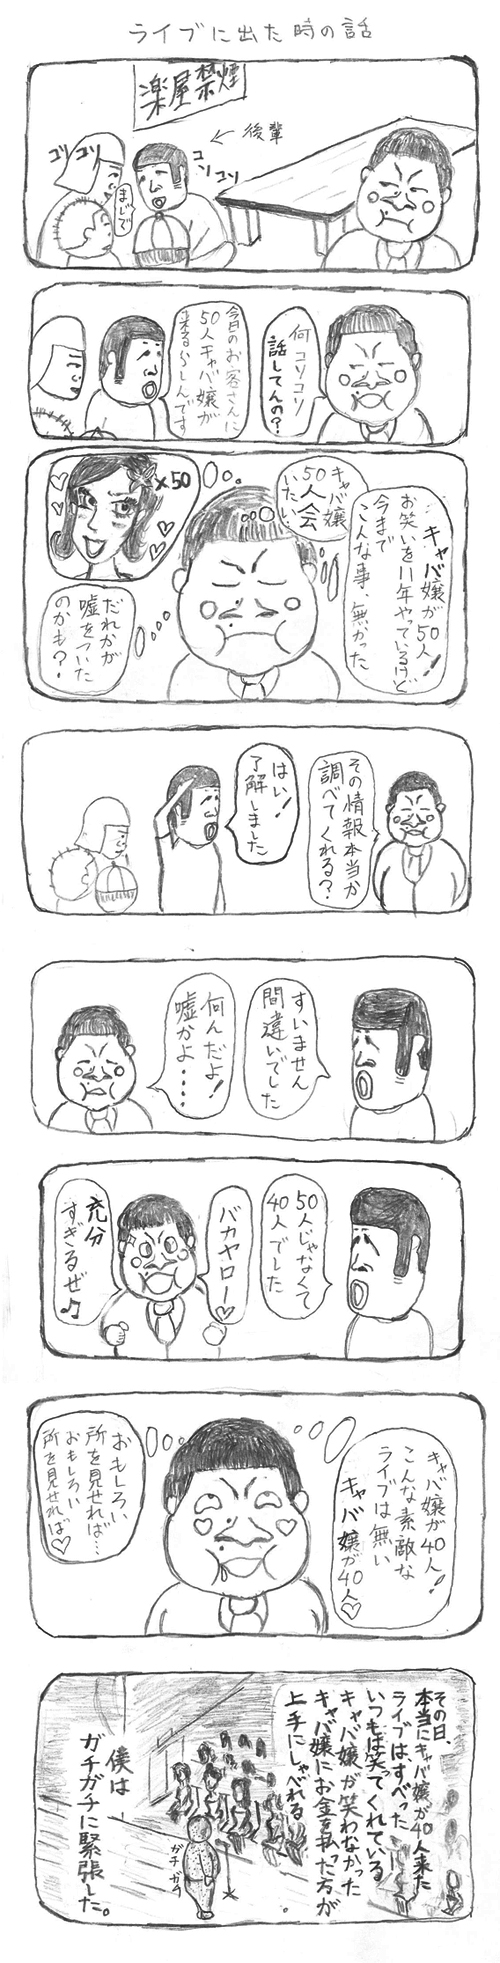 ライブに出た時の話
楽屋禁煙
←後輩
コソコソ
まじで
コソコソ
何コソコソ
話してんの?
今日のお客さんに
50人キャバ嬢が
来るらしんです
キャバ嬢が50人!
お笑いを11年やっているけど
今まで
こんな事、無かった
キャバ嬢
50人会
いたい…
×50
だれかが
嘘をついた
のかも?
その情報本当か
調べてくれる?
はい!
了解しました
すいません
間違いでした
何んだよ!
嘘かよ・・・・
50人じゃなくて
40人でした
バカヤロー♡
充分
すぎるぜ♪
キャバ嬢が40人!
こんな素敵な
ライブは無い
キャバ嬢が40人♡
おもしろい
所を見せれば…
おもしろい
所を見せれば♡
その日、
本当にキャバ嬢が40人来た
ライブはすべった
いつもは笑ってくれている
キャバ嬢が笑わなかった
キャバ嬢にお金を払った方が
上手にしゃべれる
僕は
ガチガチに緊張した。
ガチガチ